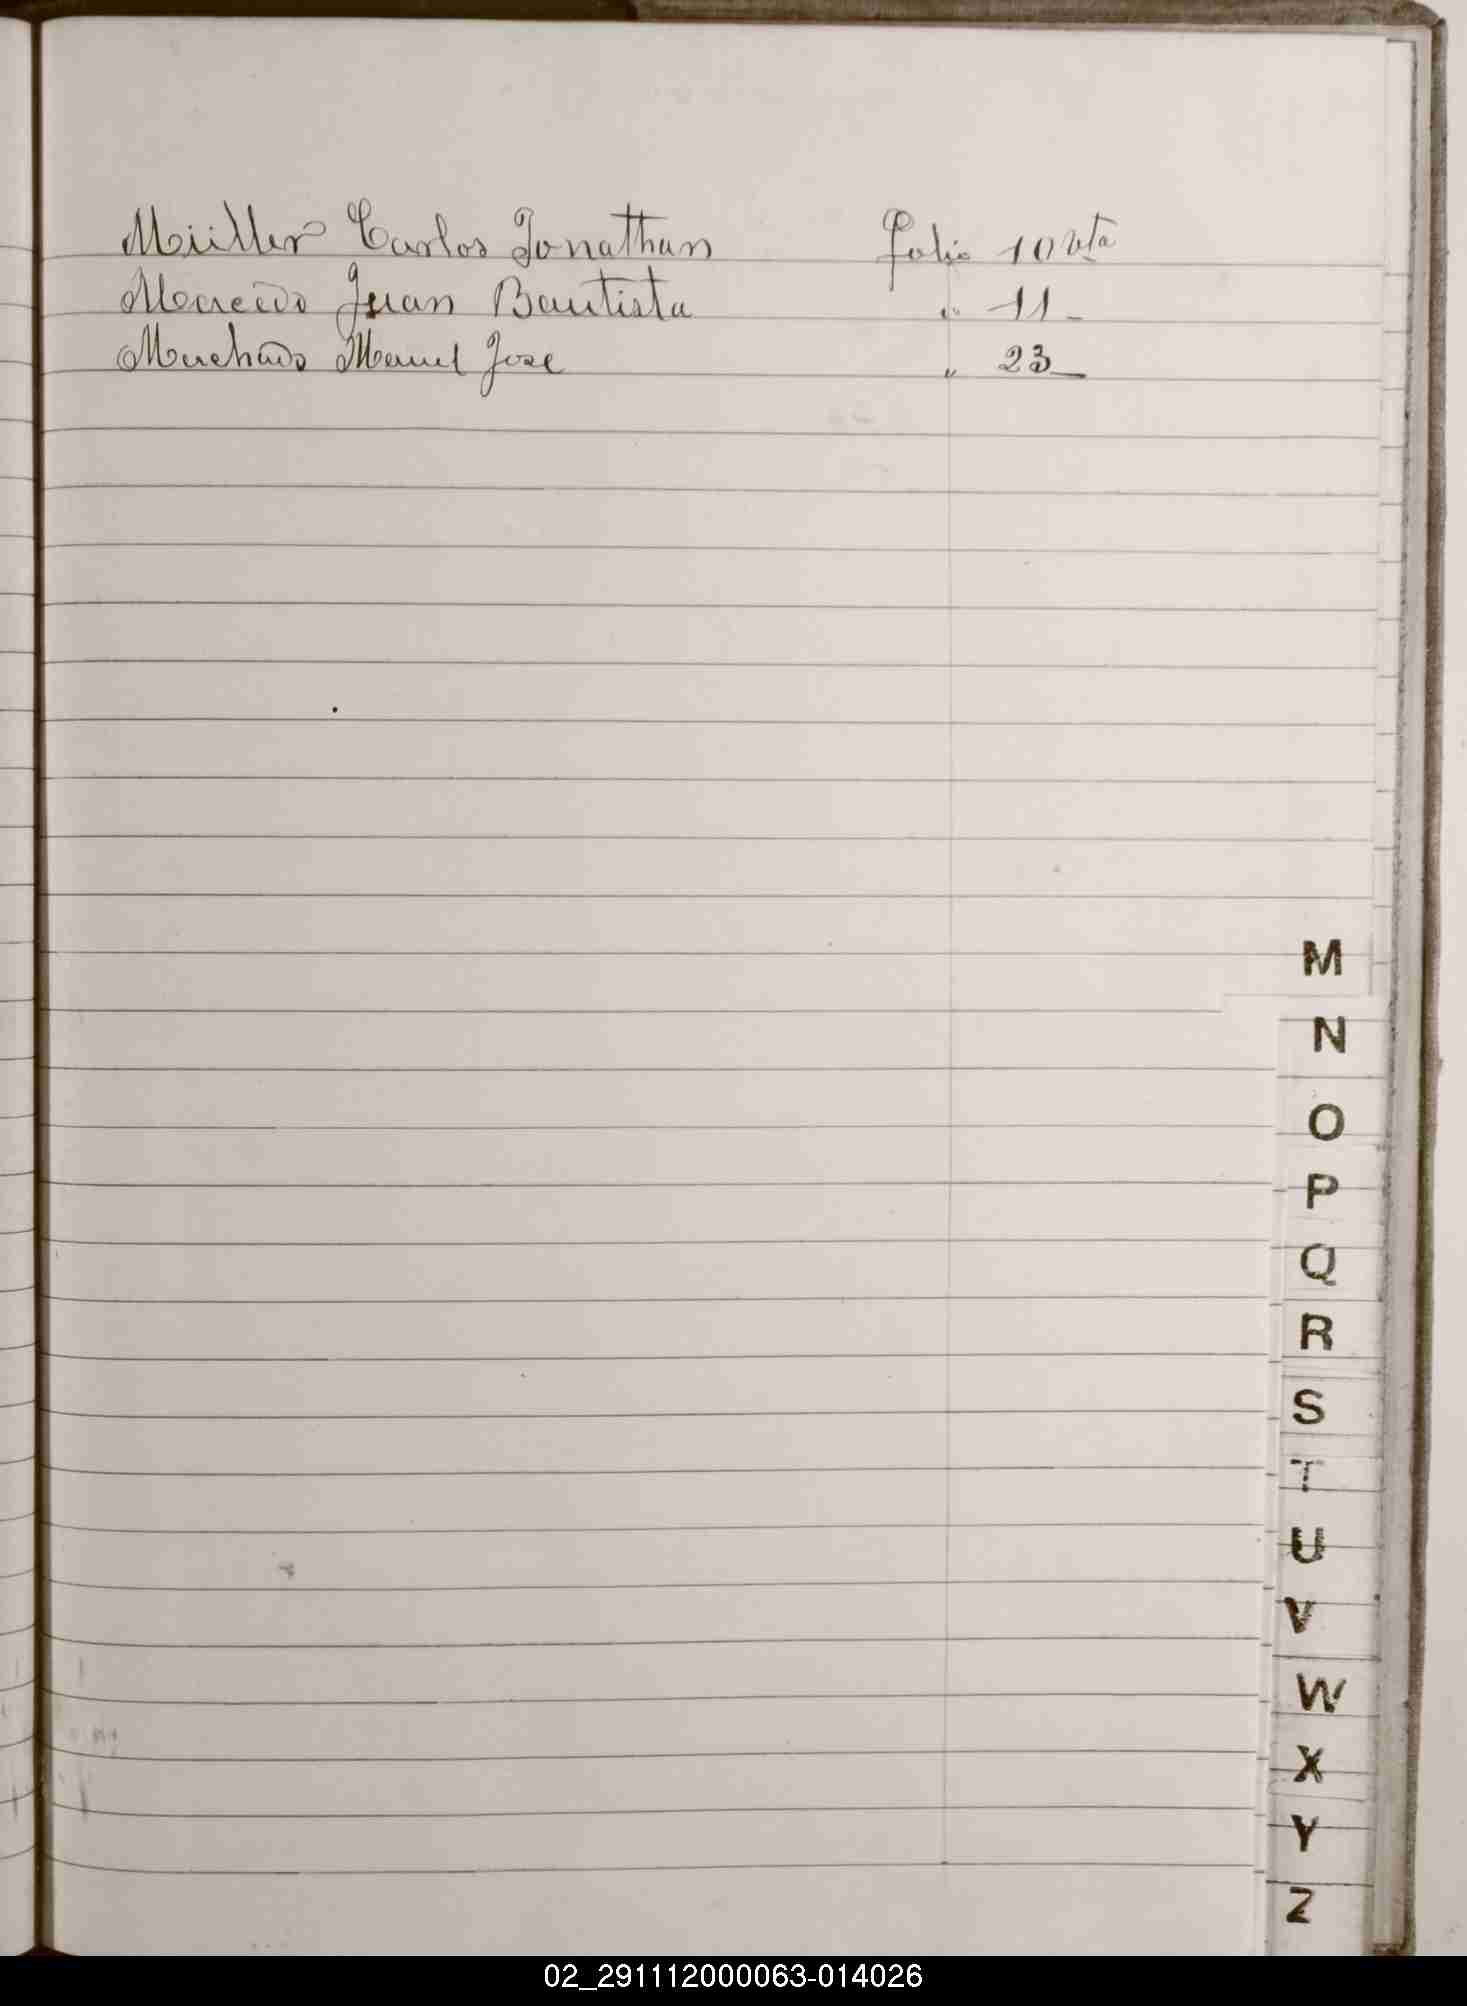 Müller Carlos Jonathan folio 10 vta
Macedo Juan Bautista " 11 -
Machado Manuel Jose " 23 _
M
N
O
P
Q
R
S
T
U
V
W
X
Y
Z
02_291112000063-014026